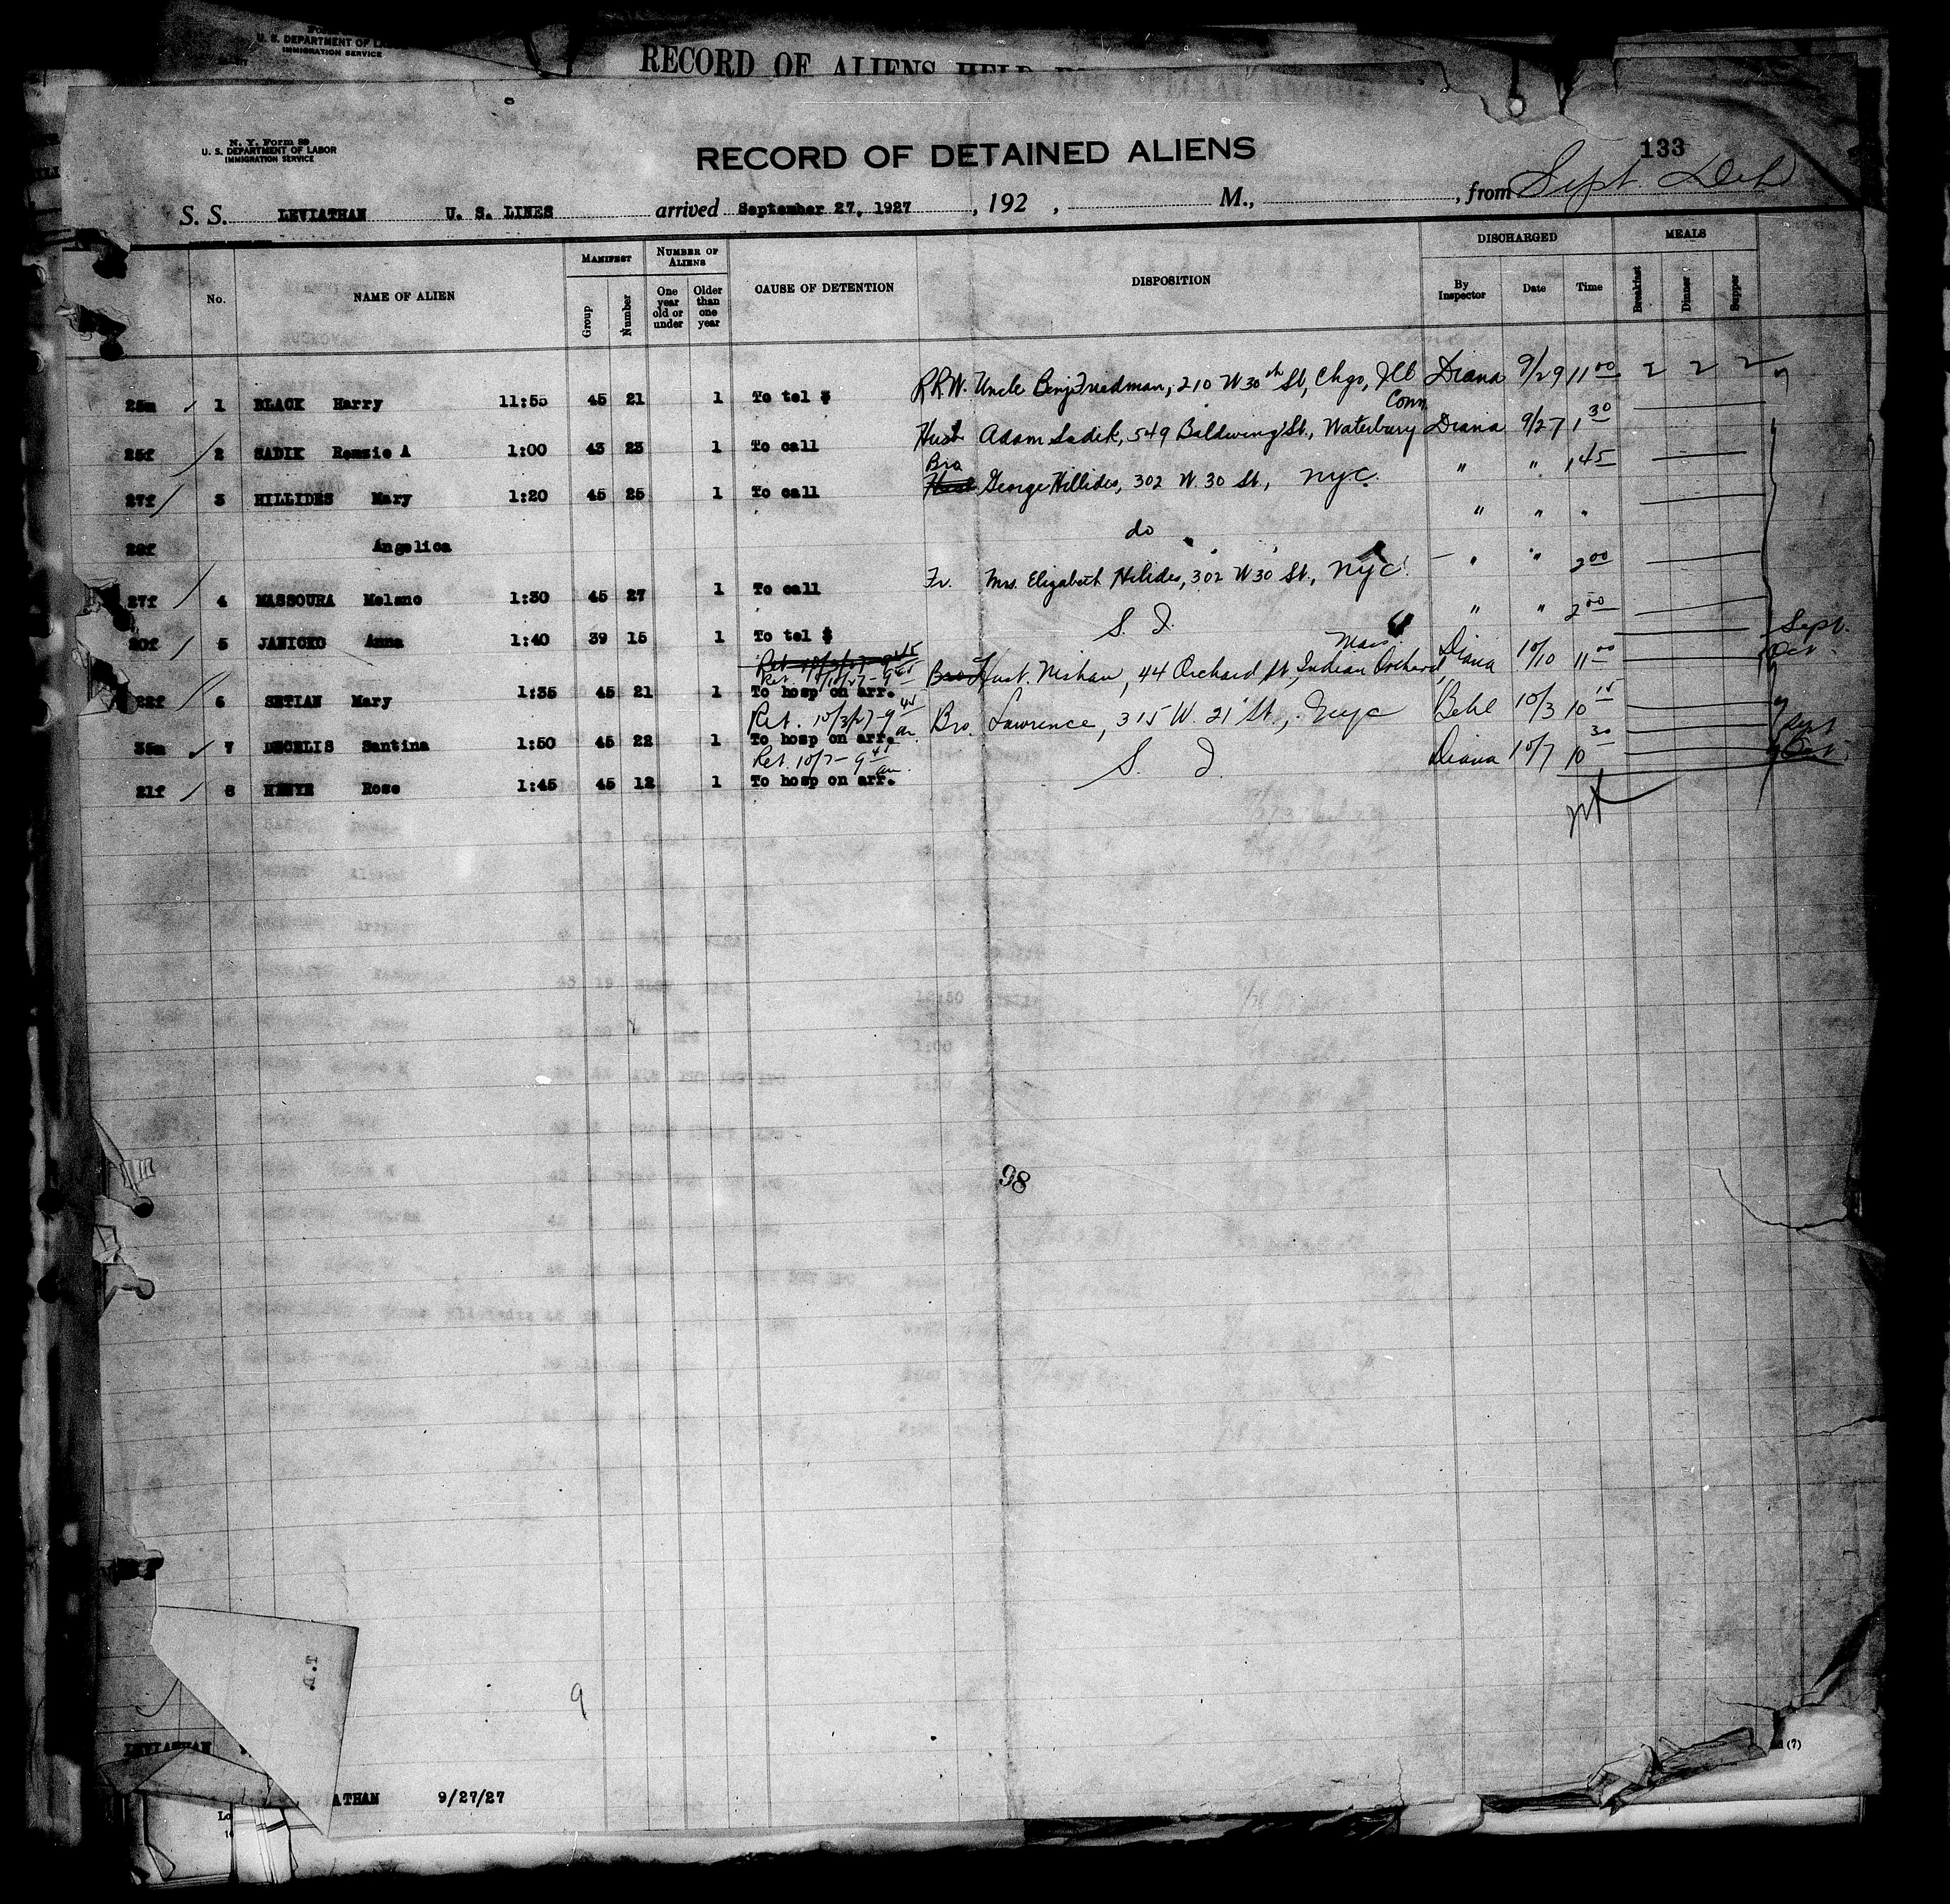 U. S. DEPARTMENT OF L
IMMIGRATION SERVICE
RECORD OF ALIENS HELD
N. Y. Form 89
U. S. DEPARTMENT OF LABOR
IMMIGRATION SERVICE
RECORD OF DETAINED ALIENS
133
S. S. LEVIATHAN U. S. LINES arrived September 27, 1927, 192 , M., , from Sept. Det
No. NAME OF ALIEN MANIFEST Group Number NUMBER OF ALIENS One year old or under Older than one year CAUSE OF DETENTION DISPOSITION DISCHARGED By Inspector Date Time MEALS Breakfast Dinner Supper
25m 1 BLACK Harry 11:55 45 21 1 To tel $ RRW. Uncle Benj Friedman, 210 W 30th St, Chgo, Ill Diana 9/29 11 00 2 2 2
Conn
25f 2 SADIK Remzie A 1:00 43 23 1 To call Husb Adam Sadik, 549 Baldwing St., Waterbury Diana 9/27 1 30
Bro
27f 3 HILLIDES Mary 1:20 45 25 1 To call George Hillides, 302 W. 30 St., NYC. " " 1 45
29f Angelica do " " "
27f 4 MASSOURA Melano 1:30 45 27 1 To call Fr. Mrs. Elizabeth Hilides, 302 W 30 St., NYC. " " 2 00
20f 5 JANICKO Anna 1:40 39 15 1 To tel $ S. I. " " 2 00 Sept.
Ret. 10/3/27 - 9 45
Ret. 10/10/27 - 9 45 Mass Oct
22f 6 SETIAN Mary 1:35 45 21 1 To hosp on arr. Bro Hust. Nishan, 44 Orchard St., Indian Orchard, Diana 10/10 11 00
Ret. 10/3/27 - 9 45 an
35m 7 DECELIS Santina 1:50 45 22 1 To hosp on arr. Bro. Lawrence, 315 W. 21 St., Nyc Behl 10/3 10 15 Sept
Ret. 10/7 - 9 45 an.
21f 8 Rose 1:45 45 12 1 To hosp on arr. S. I. Diana 10/7 10 30 Oct
98
9
LEVIATHAN
ATHAN 9/27/27
(7)